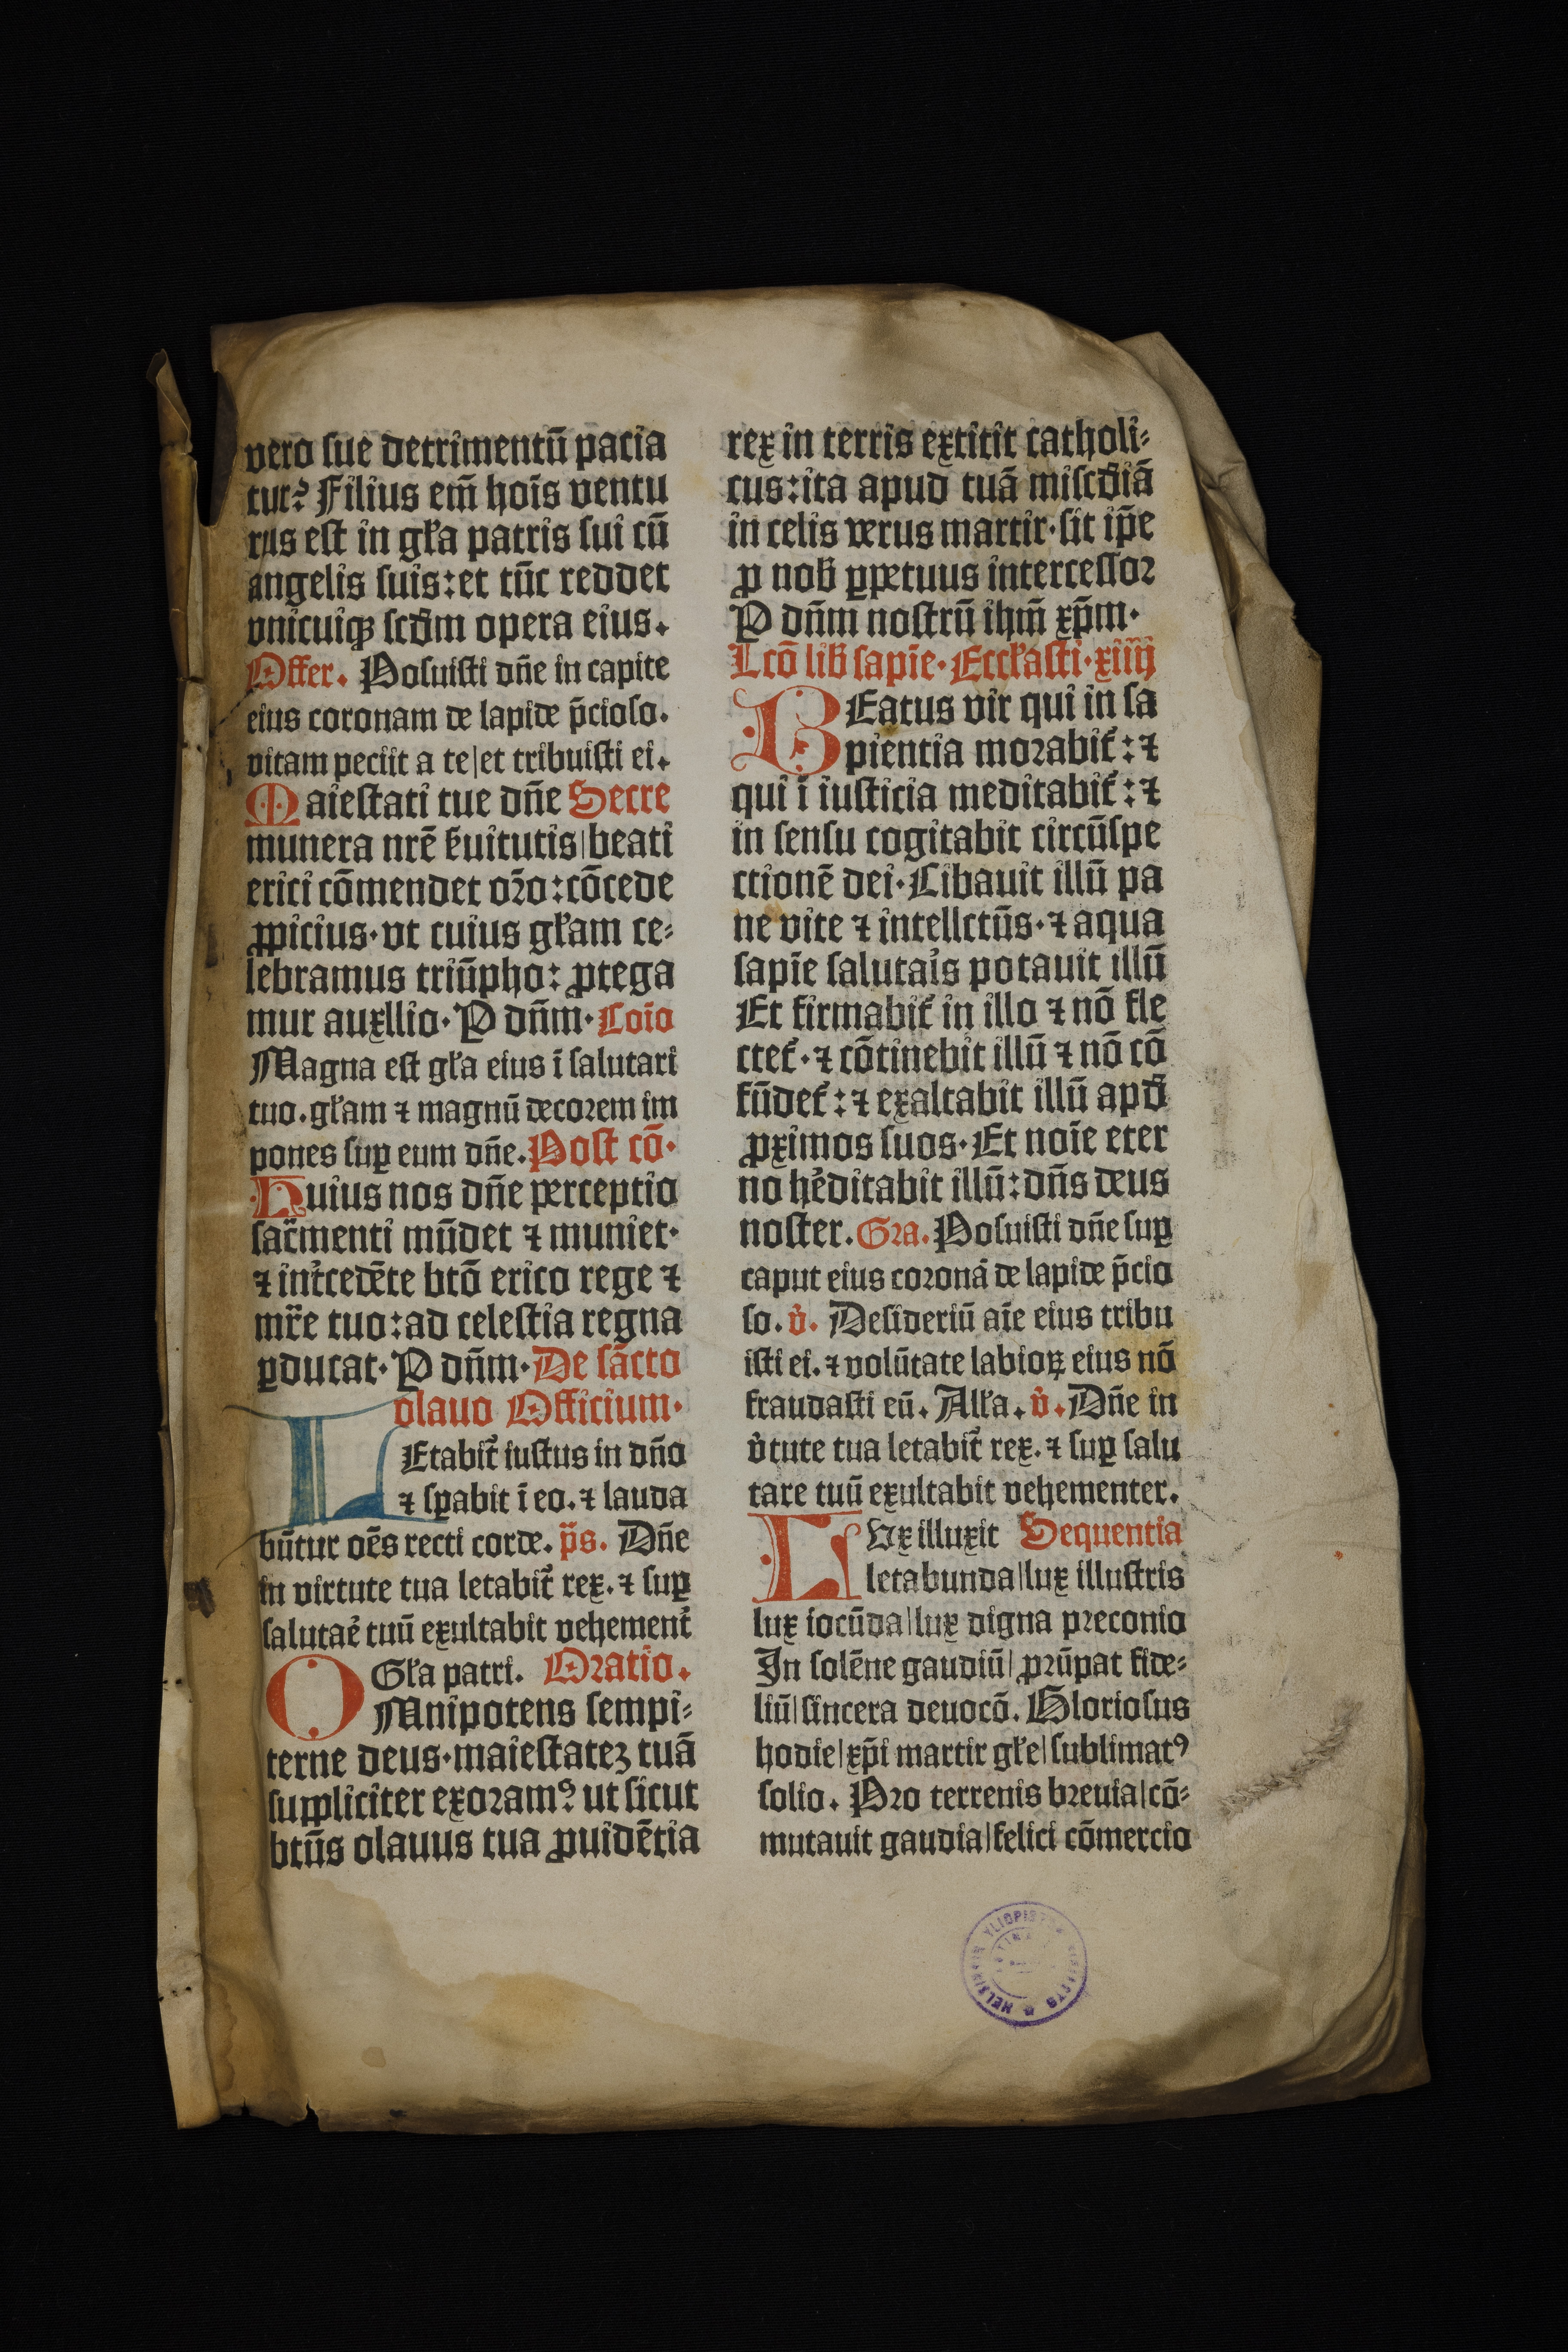 vero sue detrimentū pacia
tur? Filius em̄ hoīs ventu
rus est in gl̄a patris sui cū
angelis suis: et tūc reddet
vnicuiqꝫ scd̄m opera eius.
Offer. Posuisti dn̄e in capite
eius coronam de lapide p̄cioso.
vitam peciit a te|et tribuisti ei.
Maiestati tue dn̄e Secre
munera nrē s̄uitutis|beati
erici cōmendet or̄o: cōcede
ꝓpicius· vt cuius gl̄am ce⸗
lebramus triūpho: ꝓtega
mur auxllio· P dn̄m· Coīo
Magna est gl̄a eius ī salutari
tuo. gl̄am ⁊ magnū decorem im
pones suꝑ eum dn̄e. Post cō·
Huius nos dn̄e perceptio
sac̄menti mūdet ⁊ muniet·
⁊ int̄cedēte btō erico rege ⁊
mr̄e tuo: ad celestia regna
ꝑducat· P dn̄m· De sācto
olauo Officium·
LEtabit̄ iustus in dn̄o
⁊ sꝑabit ī eo. ⁊ lauda
būtur oēs recti corde. p̄s. Dn̄e
in virtute tua letabit̄ rex. ⁊ suꝑ
salutar̄e tuū exultabit vehement̄
Gl̄a patri. Oratio.
OMnipotens sempi⸗
terne deus· maiestateꝫ tuā
suppliciter exoramꝰ: ut sicut
btūs olauus tua ꝓuidētia
rex in terris extitit catholi⸗
cus: ita apud tuā miscd̄iā
in celis verus martir· sit ip̄e
ꝓ nob̄ ꝑpetuus intercessor
P dn̄m nostrū ihm̄ xp̄m·
Lcō lib̄ sapīe· Eccl̄asti· xiiij
BEatus vir qui in sa
pientia morabit̄: ⁊
qui ī iusticia meditabit̄: ⁊
in sensu cogitabit circūspe
ctionē dei· Cibauit illū pa
ne vite ⁊ intellctūs· ⁊ aqua
sapīe salutar̄is potauit illū
Et firmabit̄ in illo ⁊ nō fle
ctet̄· ⁊ cōtinebit illū ⁊ nō cō
fūdet̄: ⁊ exaltabit illū apd̄
ꝓximos suos· Et noīe eter
no hēditabit illū: dn̄s deus
noster. Gra. Posuisti dn̄e suꝑ
caput eius coronā de lapide p̄cio
so. v̄. Desideriū aīe eius tribu
isti ei. ⁊ volūtate labioꝝ eius nō
fraudasti eū. All̄a. v̄. Dn̄e in
v̄tute tua letabit̄ rex. ⁊ suꝑ salu
tare tuū exultabit vehementer.
LVx illuxit Sequentia
letabunda|lux illustris
lux iocūda|lux digna preconio
In solēne gaudiū|prūpat fide⸗
liū|sincera deuocō. Gloriosus
hodie|xp̄i martir gl̄e|sublimatꝰ
solio. Pro terrenis breuia|cō⸗
mutauit gaudia|felici cōmercio
HELSINGIN YLIOPISTON KIRJASTO